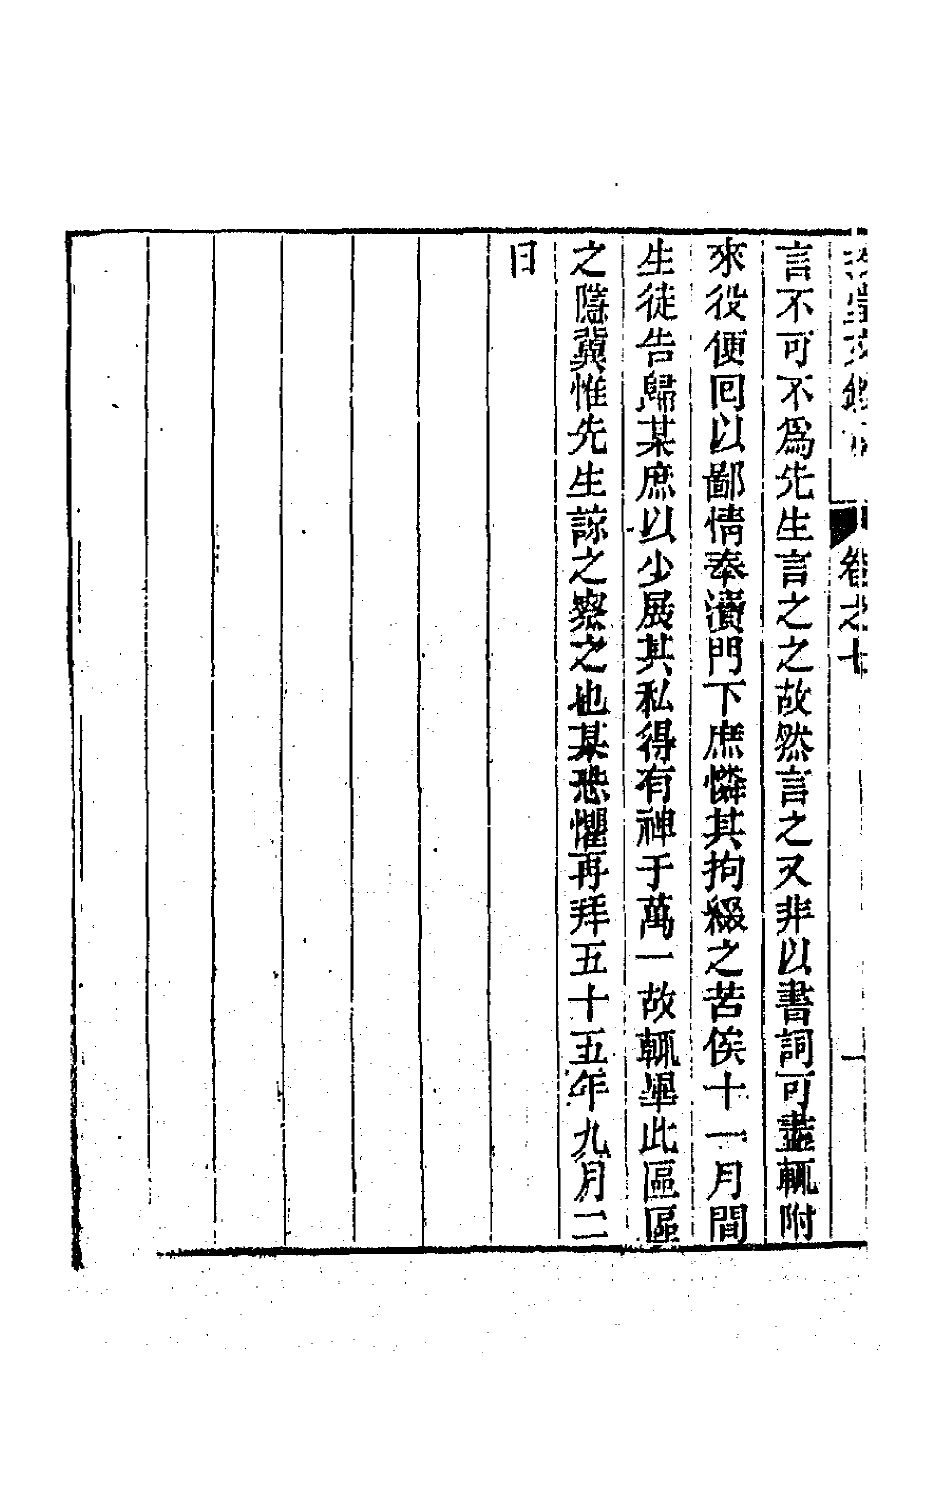 言不可不爲先生言之之故然言之又非以書詞可盡輒附
來役便回以鄙情奉瀆門下庶憐其拘綴之苦俟十一月間
生徒告歸某庶以少展其私得有神于萬一故輒畢此區區
之隱冀惟先生諒之察之也某恐懼再拜五十五年九月二
日
卷之七
一